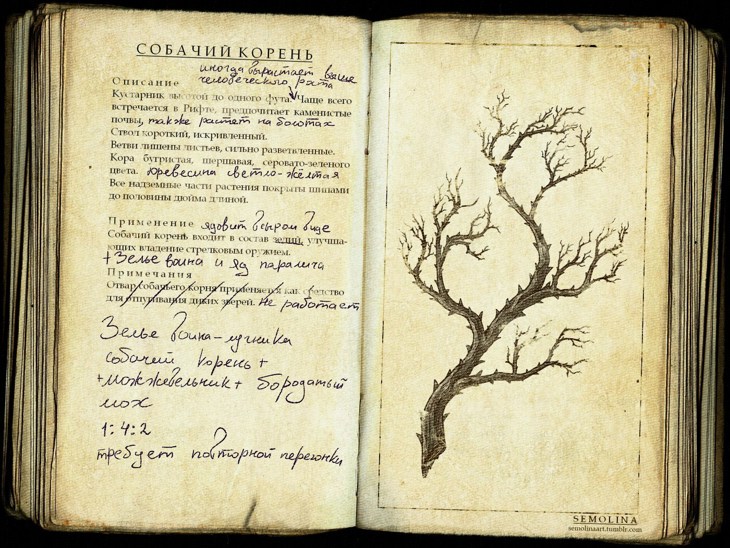 СОБАЧИЙ КОРЕНЬ
иногда вырастает выше
человеческого роста
Описание
Кустарник высотой до одного фута. Чаще всего
встречается в Рифте, предпочитает каменистые
почвы, также растет на болотах
Ствол короткий, искривленный.
Ветви лишены листьев, сильно разветвленные.
Кора бугристая, шершавая, серовато-зеленого
цвета. Древесина светло-жёлтая
Все надземные части растения покрыты шипами
до половины дюйма длиной.
Применение ядовит в сыром виде
Собачий корень входит в состав зелий, улучша-
ющих владение стрелковым оружием.
+ Зелье воина и яд паралича
Примечания
Отвар собачьего корня применяется как средство
для отпугивания диких зверей. Не работает
Зелье воина-лучника
собачий корень +
+можжевельник + бородатый
мох
1:4:2
требует повторной перегонки
SEMOLINA
semolinaart.tumblr.com